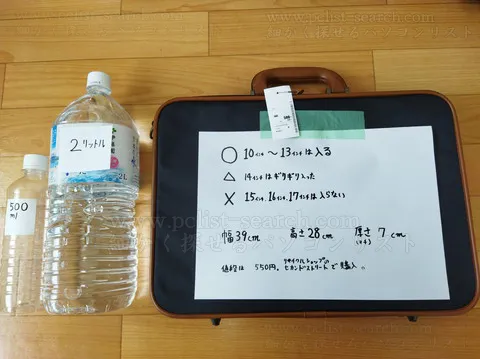 www.pclist-search.com
細かく探せるパソコンリスト
2リットル
500
ml
○ 10インチ 〜13インチは入る
△ 14インチはギリギリ入った
X 15インチ、16インチ、17インチは入らない
幅39cm 高さ28cm 厚さ7cm
値段は 550円。リサイクルショップの セカンドストリートで購入。
www.pclist-search.com
細かく探せるパソコンリスト
www.pclist-search.com
細かく探せるパソコンリスト